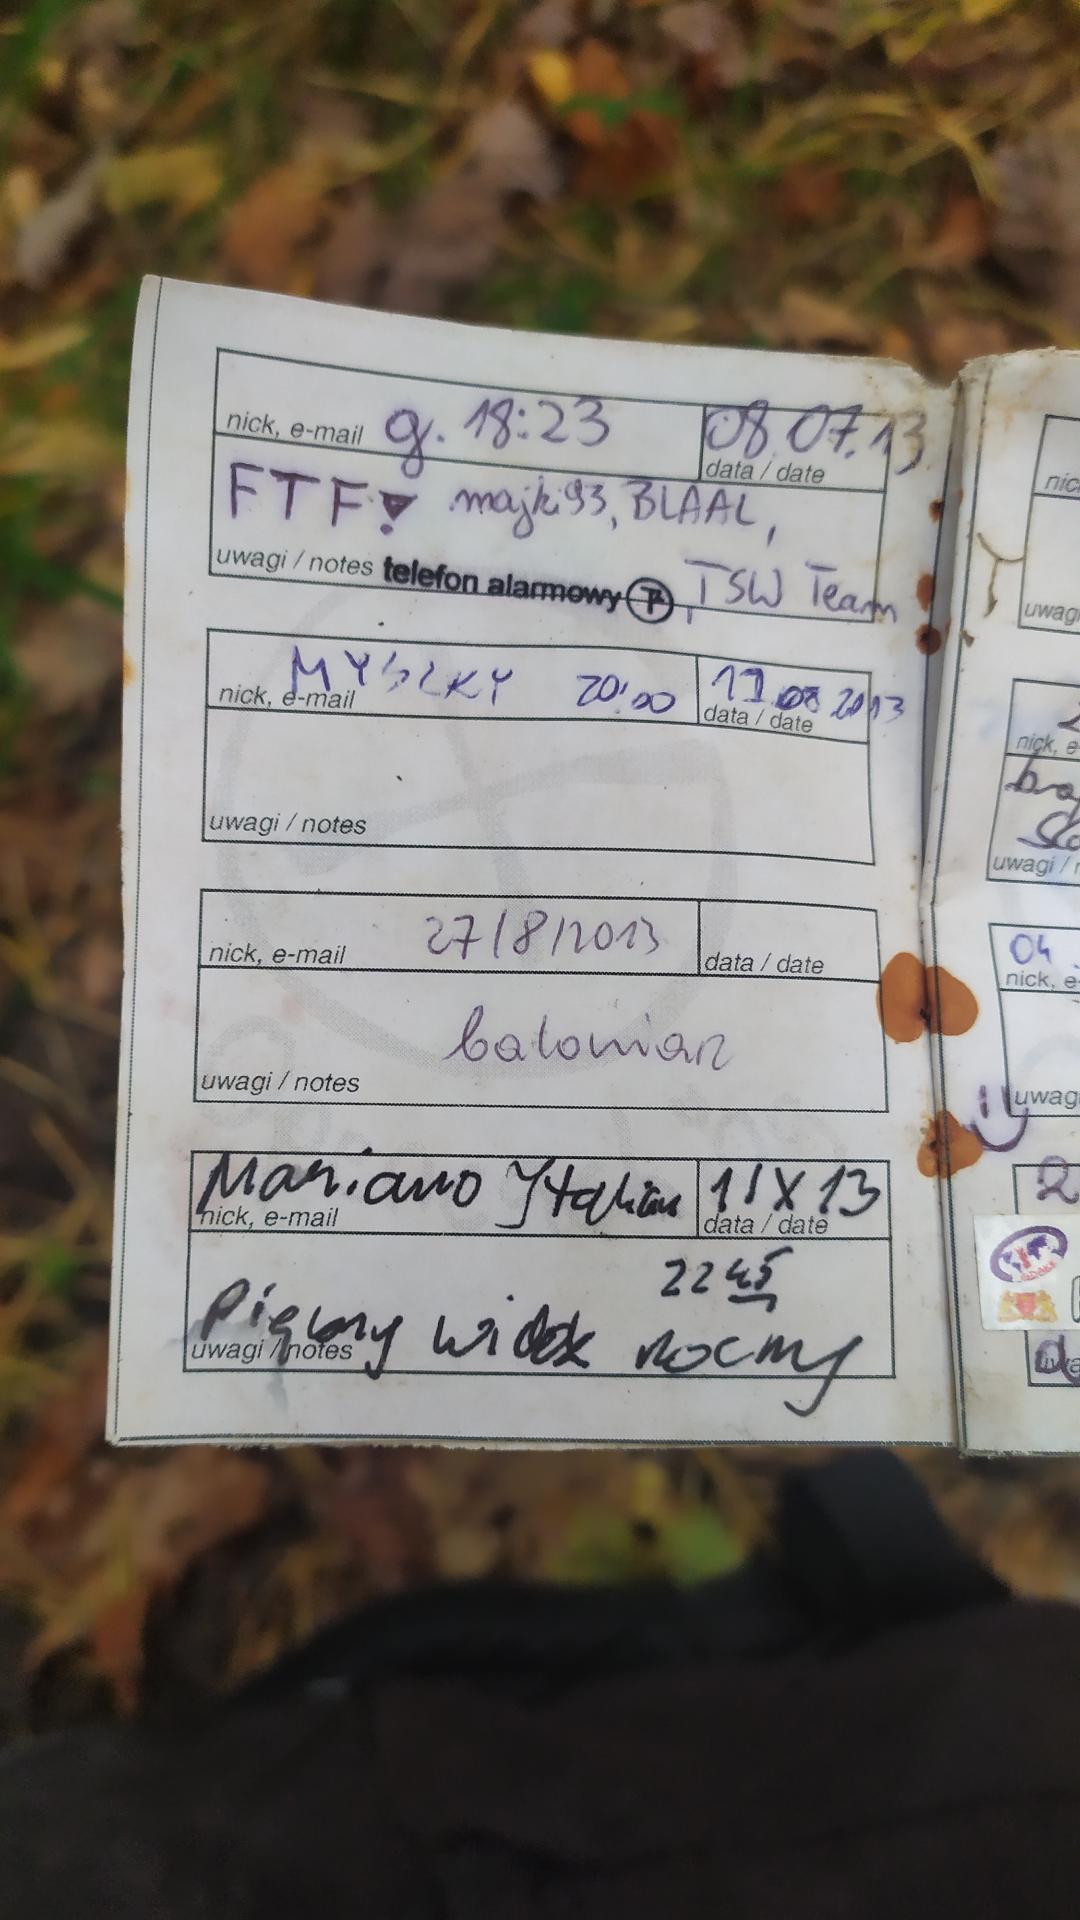 nick, e-mail g. 18:23 08.07.13
data / date
FTF! majki93, BLAAL,
uwagi / notes telefon alarmowy TSW Team
MYSZKY 20:00
nick, e-mail data / date
uwagi / notes
27/8/2013
nick, e-mail data / date
uwagi / notes
Mariano 11 X 13
nick, e-mail data / date
22 45
Piękny widok nocny
uwagi / notes
nick, e-
uwagi
04
nick, e-
uwag